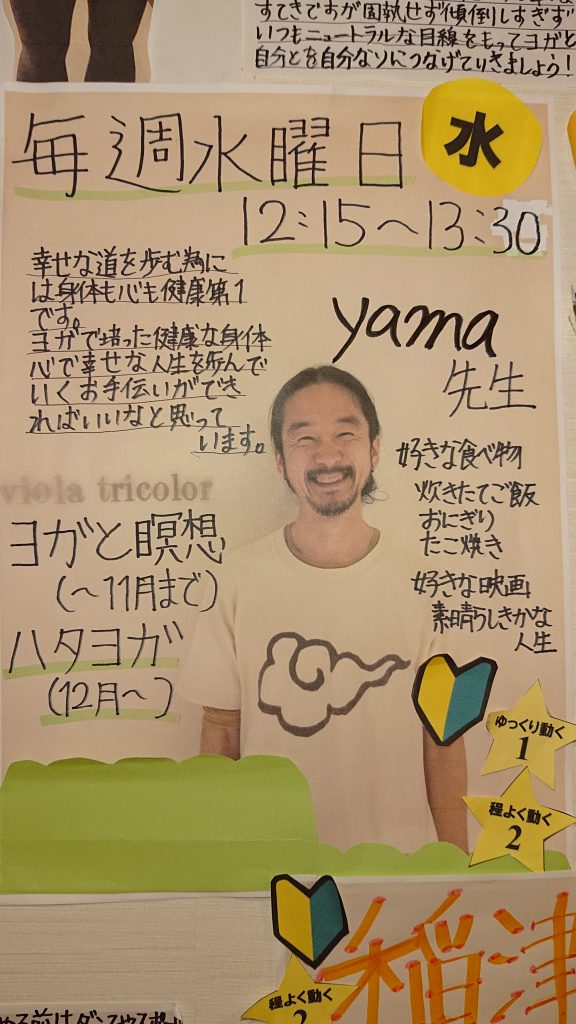 すてきですが固執せず傾倒しすぎず
いつもニュートラルな目線をもってヨガと
自分とを自分なりにつなげていきましょう!
毎週水曜日
水
12:15~13:30
幸せな道を歩む為に
は身体も心も健康第1
です。
ヨガで培った健康な身体
心で幸せな人生を歩んで
いくお手伝いができ
ればいいなと思って
います。
yama
先生
好きな食べ物
炊きたてご飯
おにぎり
たこ焼き
好きな映画
素晴らしきかな
人生
viola tricolor
ヨガと瞑想
(~11月まで)
ハタヨガ
(12月~)
ゆっくり動く
1
程よく動く
2
稲津
程よく動く
2